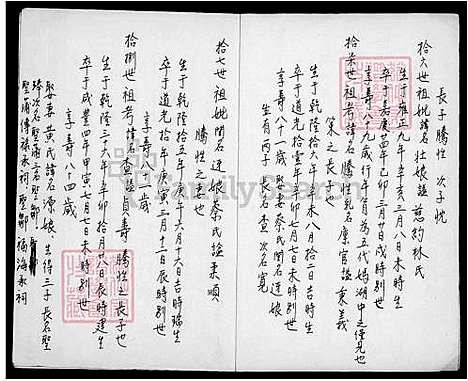 長子騰性 次子忱
拾六世祖妣諱名壯娘諡慈約林氏
生于雍正九年辛亥二月八日未時生
卒于嘉庚四年己卯三月廿日戌時別世
享壽八十九歲行年為五代媽湖中之僅見也
策之長子也
拾柒世祖考諱名騰性乳名康官諡秉義
生于乾隆拾六年辛未八月二日吉時生
卒于道光拾壹年辛卯七月七日未時別世
享壽八十一歲娶妻蔡氏閨名廷娘
生有丙子 長名查 次名寬
拾七世祖妣閨名廷娘蔡氏諡柔順
騰性之妻也
生于乾隆拾五年庚午六月十六日吉時瑞生
卒于道光拾年庚寅三月十二日辰時別世
享壽八一歲
拾捌世祖考諱名查諡貞壽 騰性之長子也
生于乾隆三六年辛卯拾月廿八日辰時建生
卒于咸豐四年甲寅七月七日未時別世
享壽八十四歲
娶妻黃氏諱名源娘 生得三子 長名聖
璋 次名聖蒲 三名聖鄒
聖蒲傳孫承祠 聖鄒 福海承祠
FamilySearch